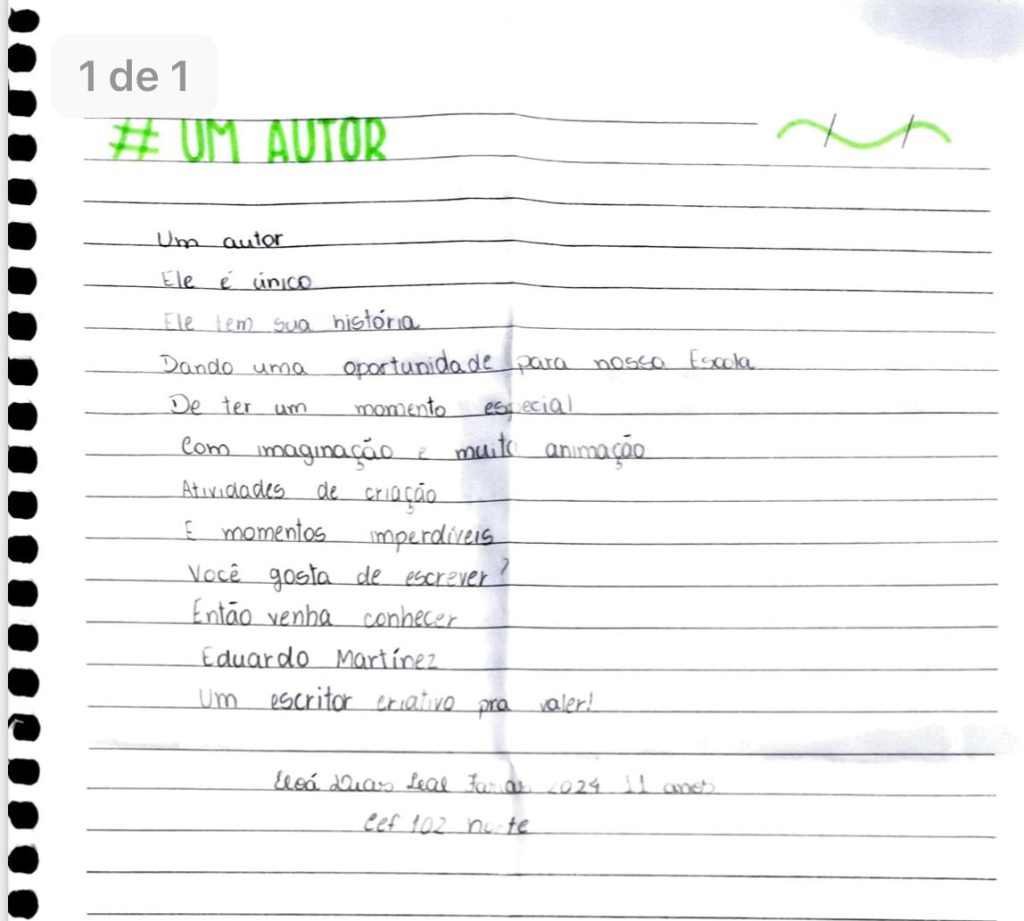 1 de 1
# UM AUTOR
Um autor
Ele é único
Ele tem sua história
Dando uma oportunidade para nossa Escola
De ter um momento especial
Com imaginação e muito animação
Atividades de criação
E momentos imperdíveis
Você gosta de escrever?
Então venha conhecer
Eduardo Martínez
Um escritor criativo pra valer!
Leal 2024 11 anos
Cef 102 norte